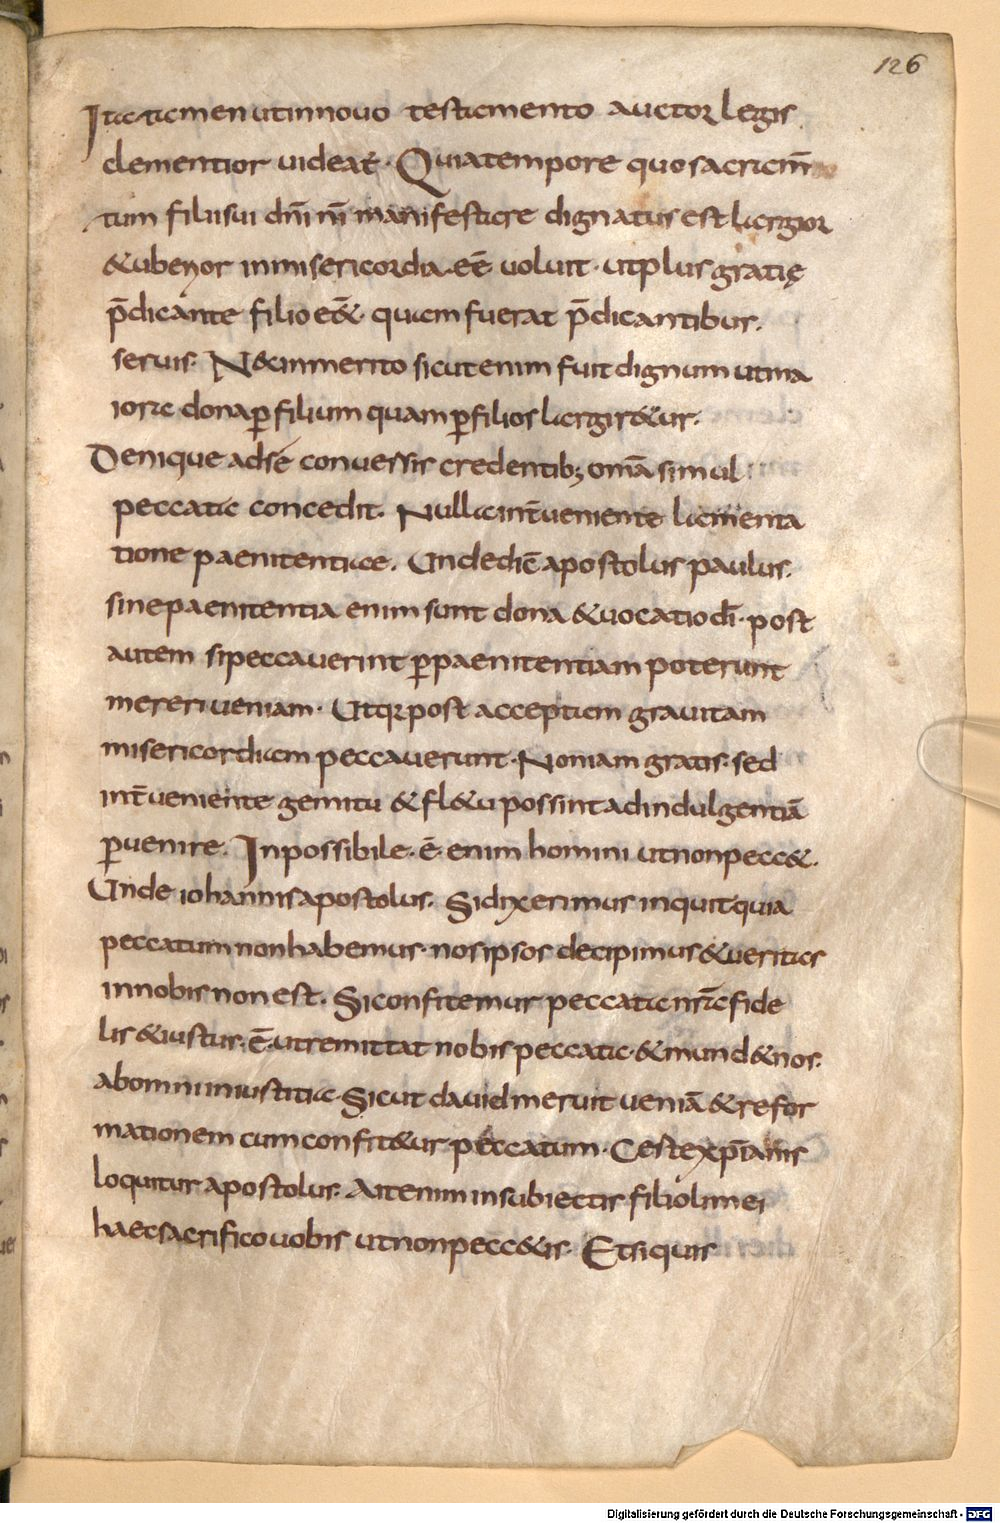 126
Ita tamen ut in nouo testamento auctor legis
clementior uideat̄· Quia tempore quo sacram̄
tum filii sui dn̄i nī manifestare dignatus est largior
& uberior in misericordia eē uoluit· ut plus gratię
p̄dicante filio e&̄· quam fuerat p̄dicantibus·
seruis· N& inmerito sicut enim fuit dignum ut ma
iora dona ꝑ filium quam ꝑ filios largir&ur·
Denique ad sé conuessis credentib; omā simul
peccata concedit· Nulla int̄ueniente lamenta
tione paenitentiae· Unde diē apostolus paulus·
sine paenitentia enim sunt dona & uocatio dī· post
autem si peccauerint ꝑ paenitentiam poterunt
mereri ueniam· Ut qr post acceptam grauitam
misericordiam peccauerunt· Non iam gratis· sed
int̄ueniente gemitu & fl&u possint ad indulgentiā
ꝑuenire· Inpossibile· ē· enim homini ut non pecc&·
Unde iohannis apostolus· Si dixerimus inquit quia
peccatum non habemus· nos ipsos decipimus & ueritas
in nobis non est· Si confitemur peccata nr̄a fide
lis & iustus· ē· ut remittat nobis peccata· & mund& nos·
ab omni iniustitia· Sicut dauid meruit ueniā & refor
mationem cum confit&ur peccatum· Cest ex p̄ianis
loquitur apostolus· Ait enim in subiectis filioli mei
haec sacrifico uobis ut non pecc&is· Et si quis
Digitalisierung gefördert durch die Deutsche Forschungsgemeinschaft - DFG